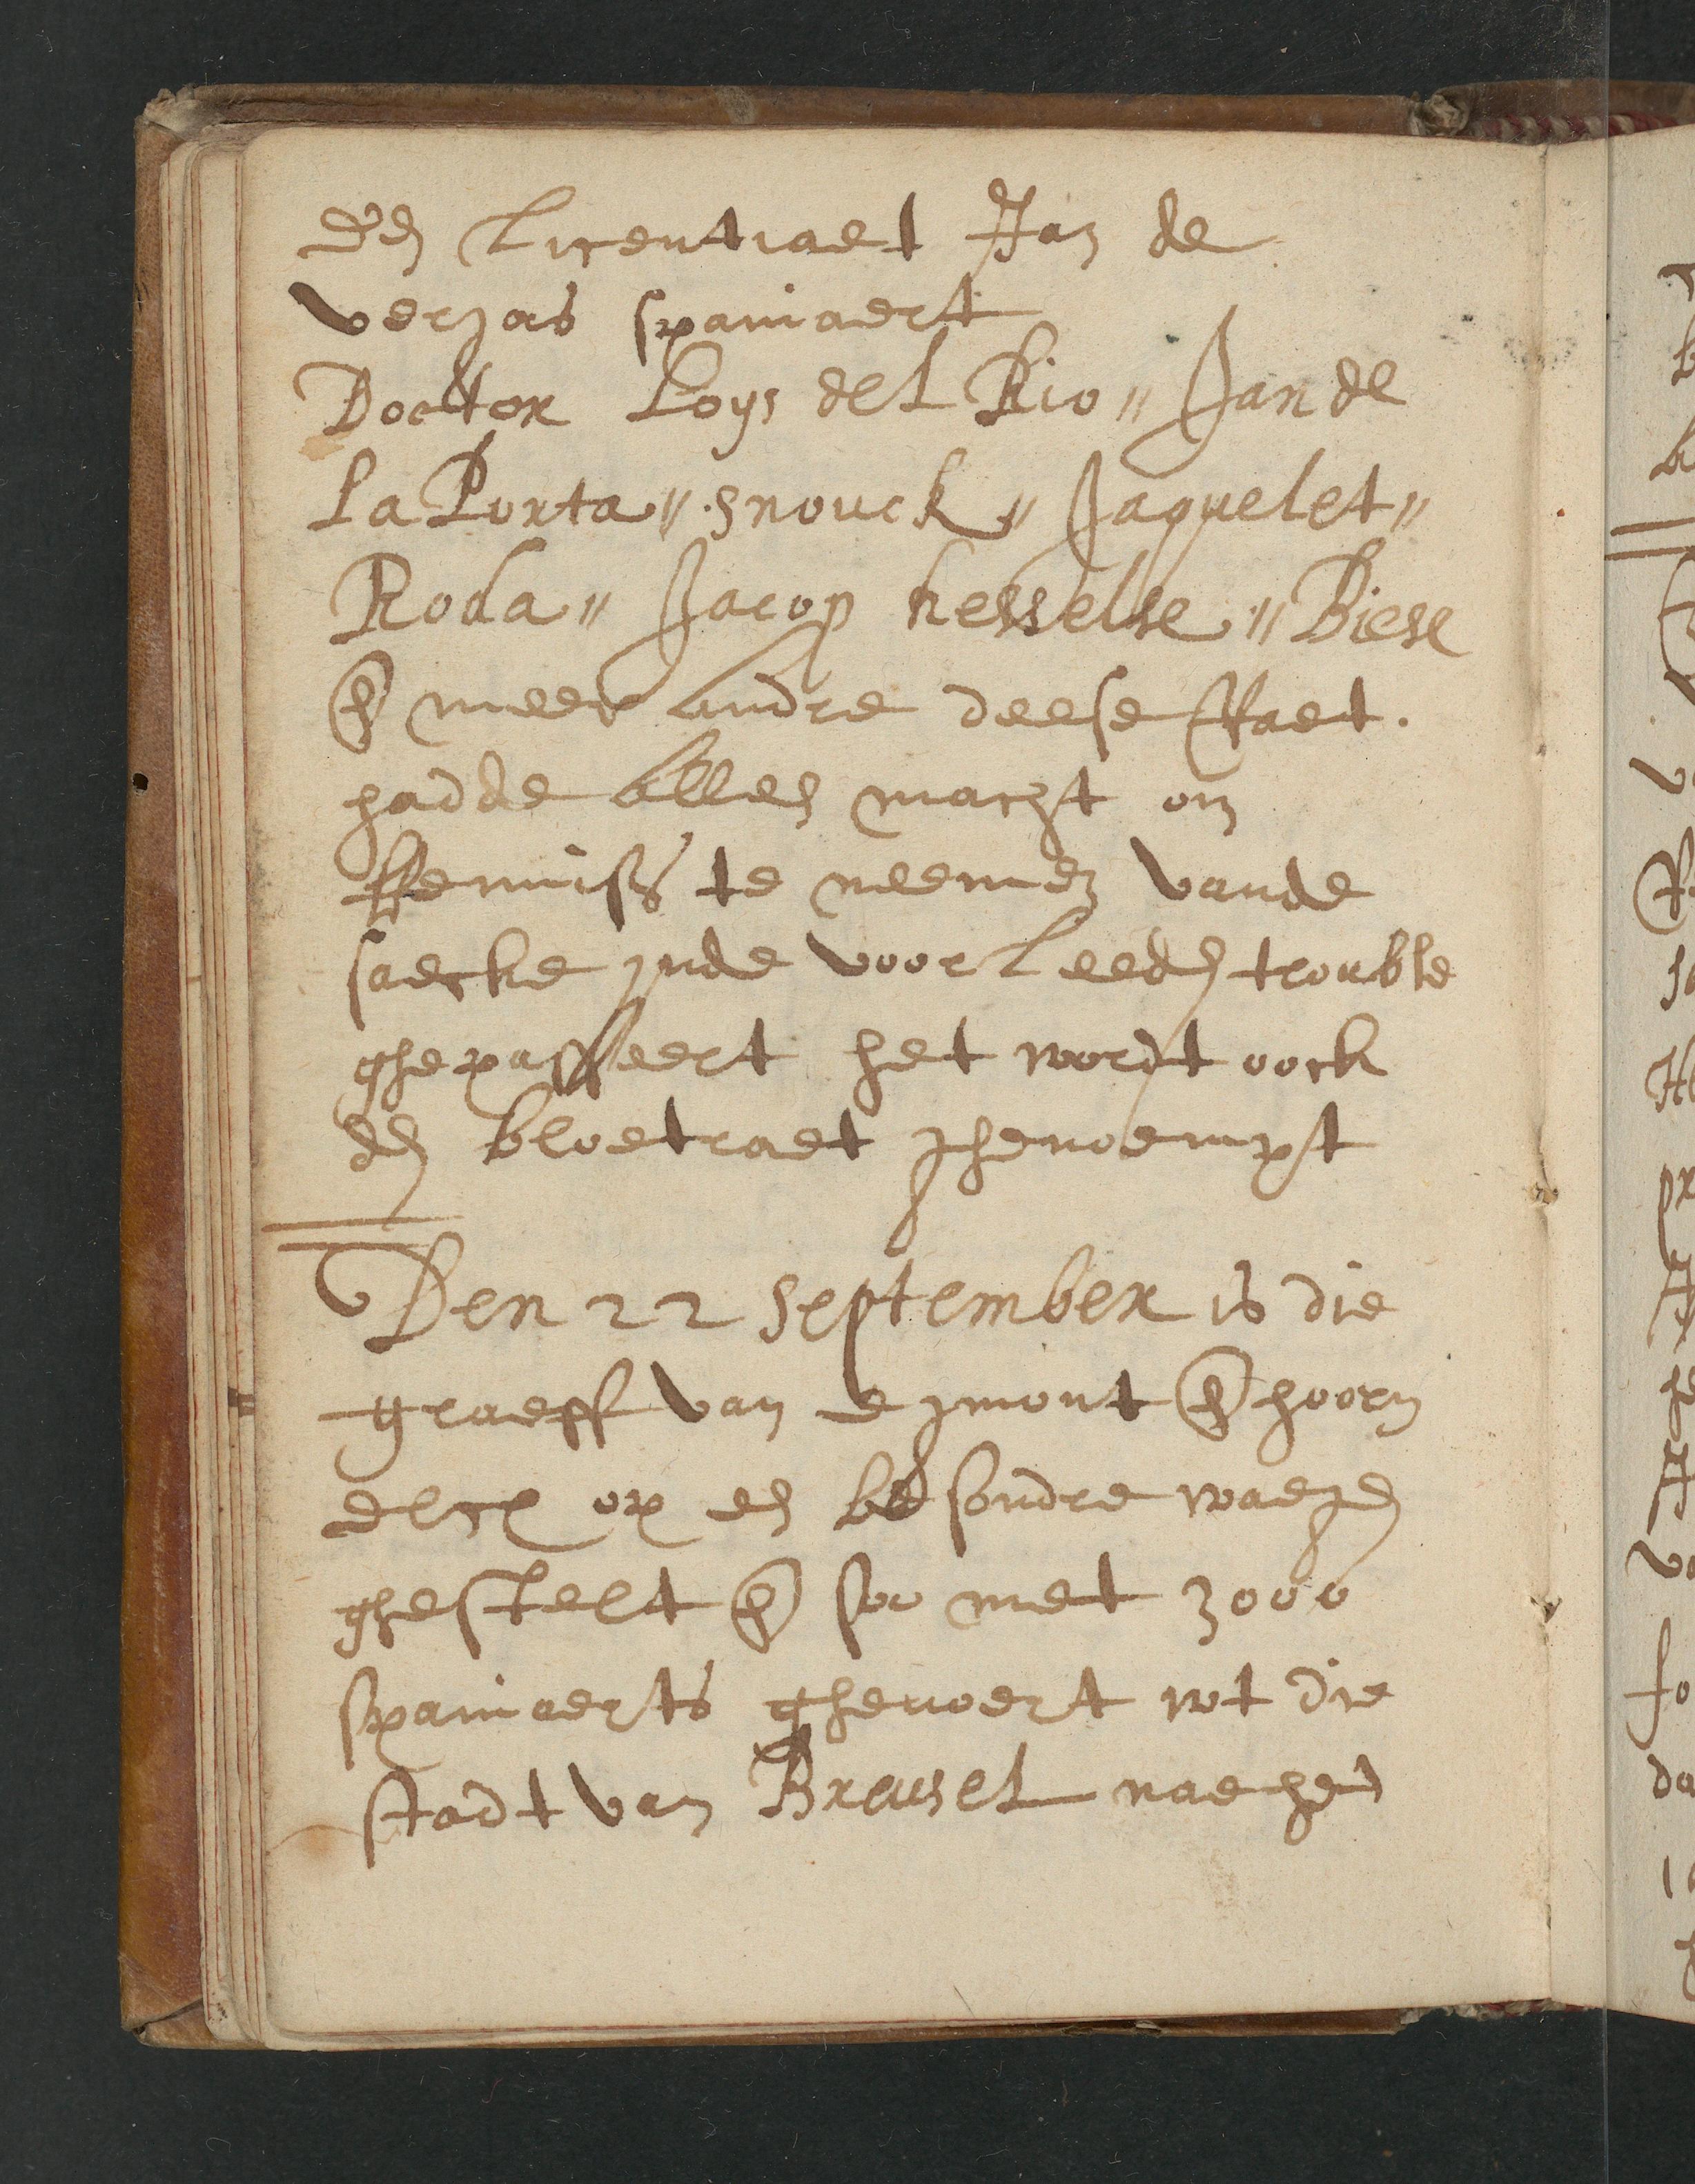 den licentiaet Jan de
vergas spaniaert
Docktor Loys del Rio " Jan de
La Porta " snouck " Jaquelet "
Roda " Jacop hesselse " Biese
eñ meer andre deese Raet.
hadde alles macht om
kenniss te neemen vande
saecke inde voorleeden trouble
ghepasseert het wordt oock
den bloetraet ghenoempt
Den 22 september is die
graeff van egmont eñ hoorn
elck op een besondre wagen
ghestelt eñ soo met 3000
spaniaerts ghevoert wt die
stadt van Breusel nae hen